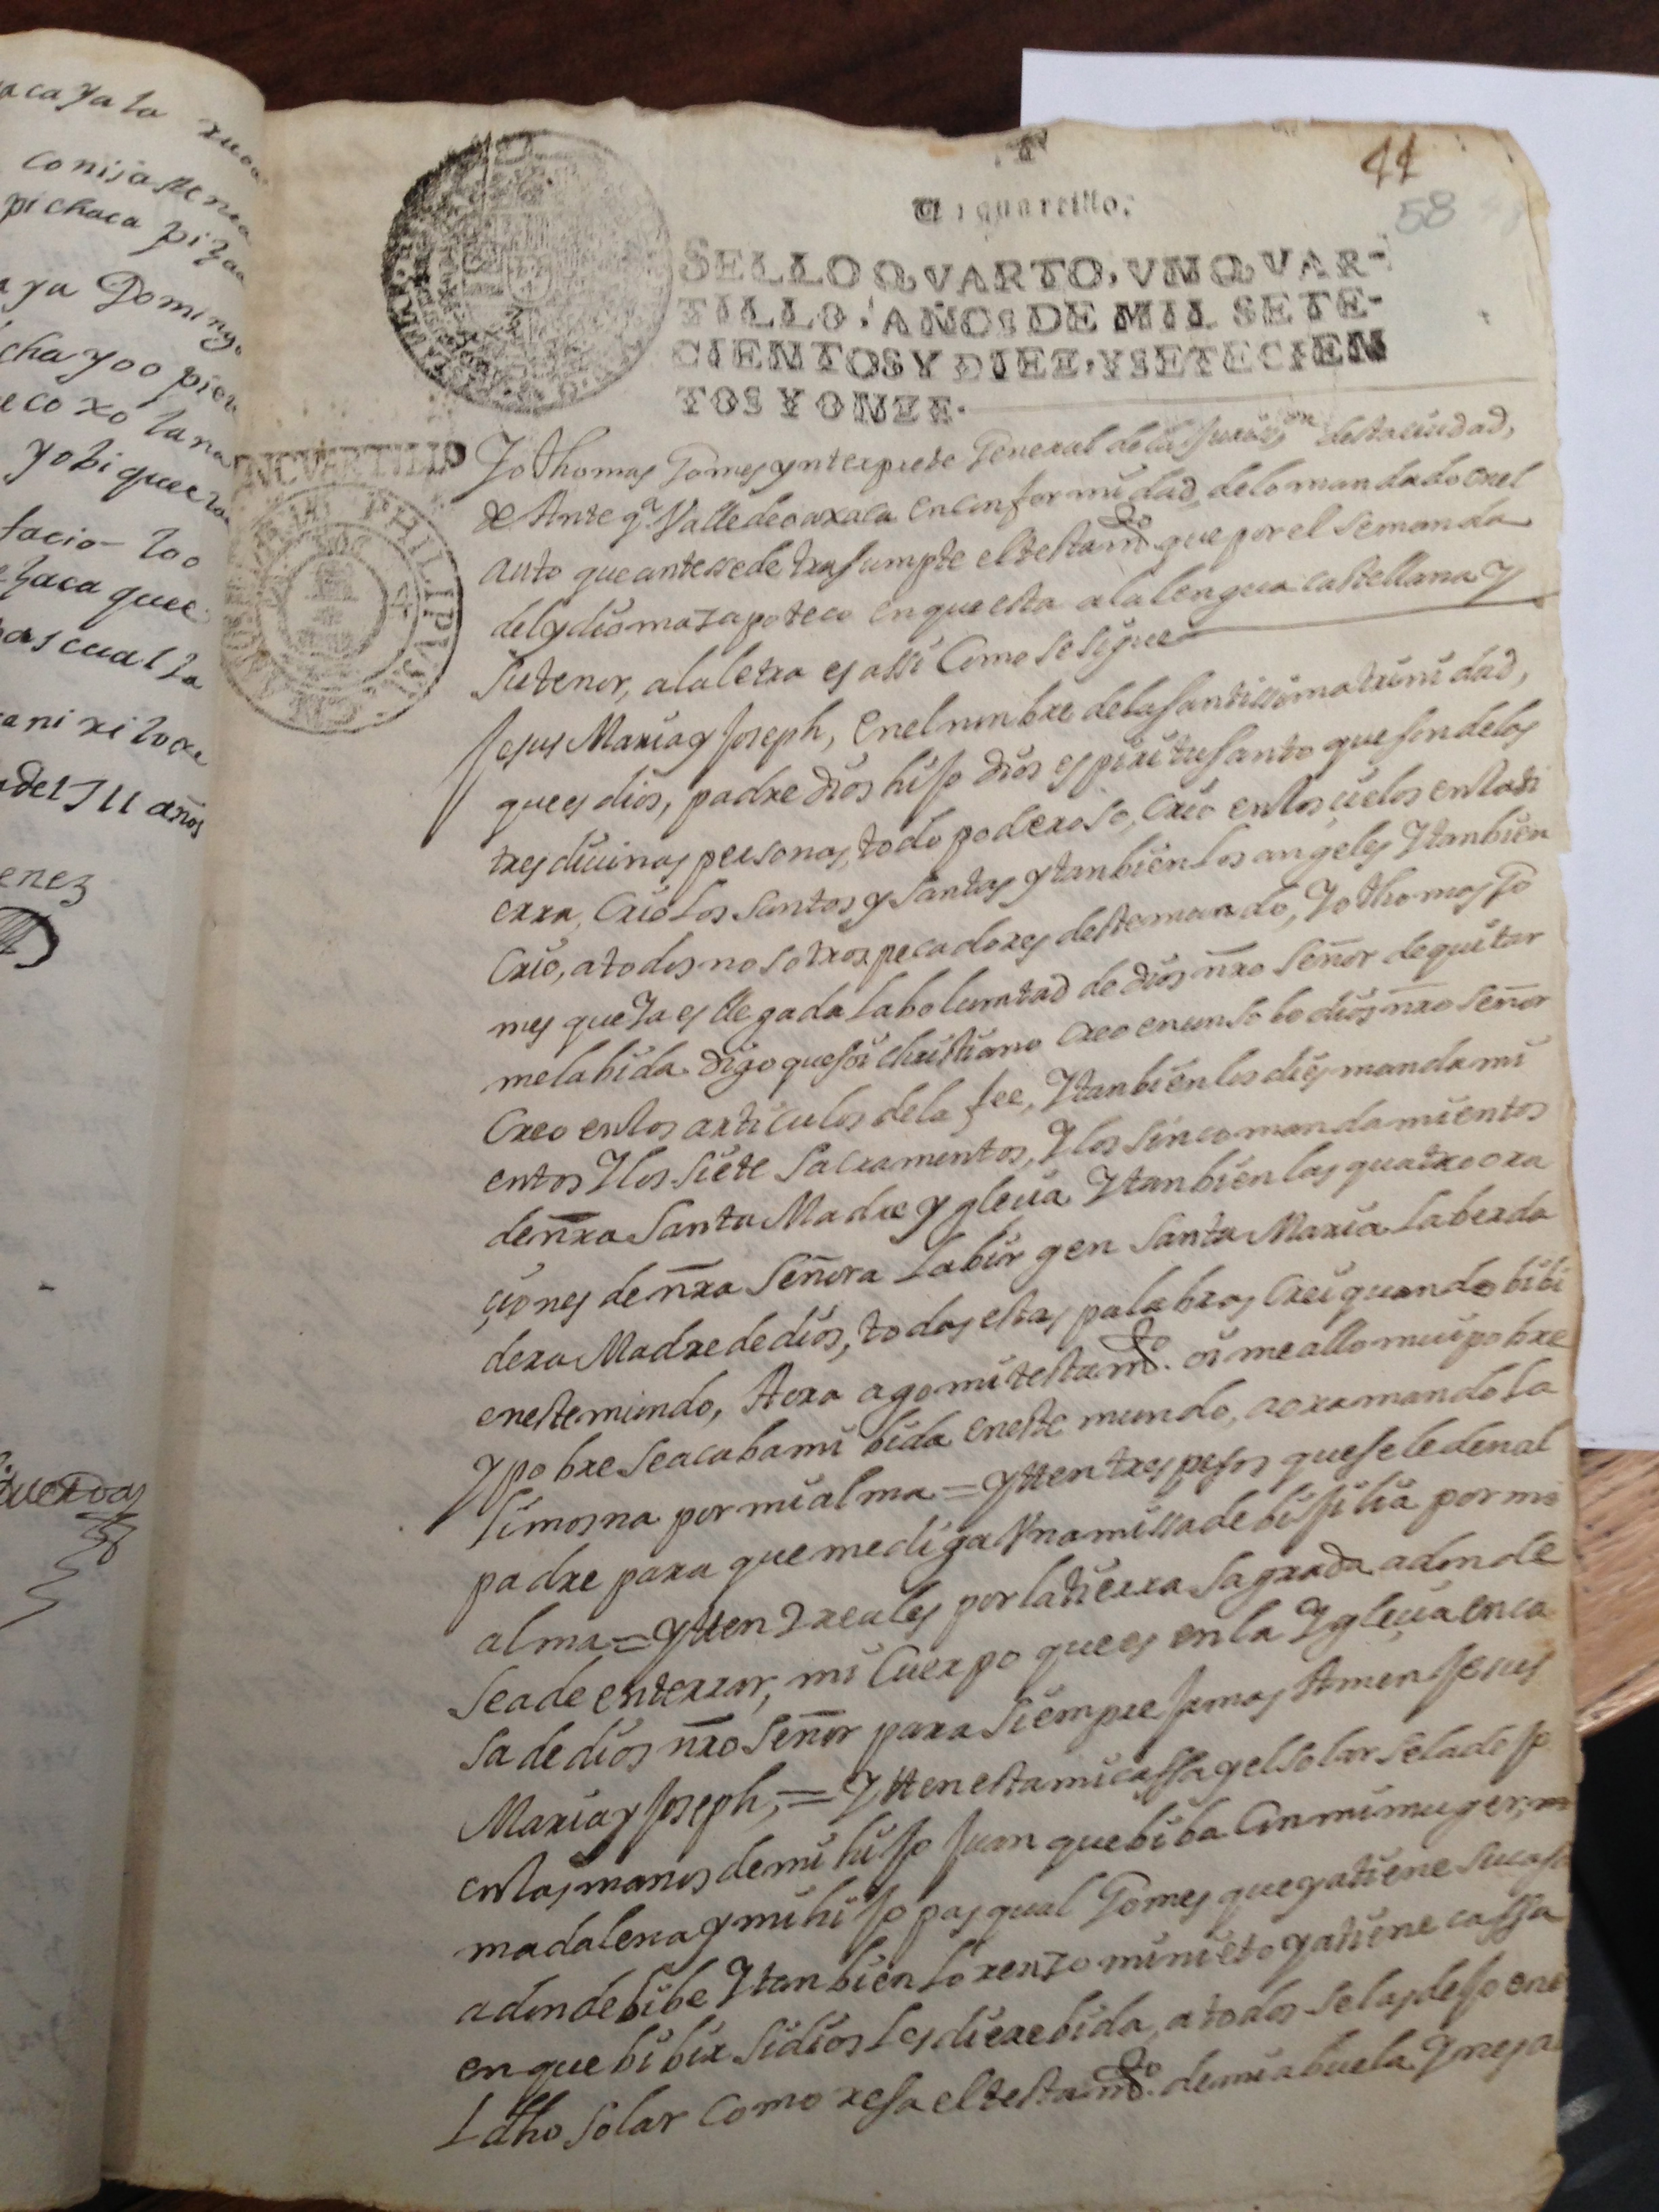 acayala xuaa
conija stenea
pichaca pizaa
aya Domingo
cha yoo pieni
eco xo lana
yobi queeza
facio - loo
ehaca quee
pascual la
ani xi loce
del 711 años
enez
44
58
Un quartillo.
SELLO QVARTO, VN QVAR-
TILLO, AÑOS DE MIL SETE-
CIENTOS Y DIEZ, Y SETECIEN
TOS Y ONZE.
VNCVARTILLO
PHILIPVS
Yo thomas Gomes ynterprete General de la Jurisson desta ciudad,
de Anteqa Valle de oaxaca en conformidad de lo mandado en el
auto que antessede trasumpte el testamto que por el se manda
del ydioma zapoteco en que esta a la lengua castellana y
su tenor, a la letra es assi como se sigue
Jesus Maria y Joseph, En el nombre de la santissima trinidad,
que es dios, padre dios hijo dios espiritu santo que son de las
tres divinas personas, todo poderoso, crio en los cielos en la ti
erra, crio los santos y santas y tanbien los angeles Y tanbien
crio, a todos nosotros pecadores deste mundo, Yo thomas Go
mes que Ya es llegada la boluntad de dios nro señor de quitar
me la bida digo que soi christiano creo en un solo dios nro señor
creo en los articulos de la fee, Y tanbien los dies mandami
entos Y los siete sacramentos, Y los sinco mandamientos
de nra Santa Madre ygleçia Y tanbien las quatro ora
çiones de nra Señora la birgen Santa Maria la berda
dera Madre de dios, todas estas palabras crei quando bibi
en este mundo, Aora ago mi testamto oi me allo mui pobre
y pobre se acaba mi bida en este mundo, aora mando la
limosna por mi alma = Ytten tres pesos que se le den al
padre para que me diga Vna missa de bijilia por mi
alma = Ytten 2 reales por la tierra sagrada adonde
se a de enterrar, mi cuerpo que es en la Ygleçia en ca
sa de dios nro Señor para siempre Jamas Amen Jesus
Maria y Joseph, = Ytten esta mi cassa y el solar se la dejo
en las manos de mi hijo Juan que biba con mi muger, m
madalena y mi hijo pasqual Gomes que ya tiene su casa
adonde bibe Y tanbien Lorenzo mi nieto ya tiene cassa
en que bibir si dios les diere bida, a todos se las dejo en e
l dho solar como resa el testamto de mi abuela Ynes a